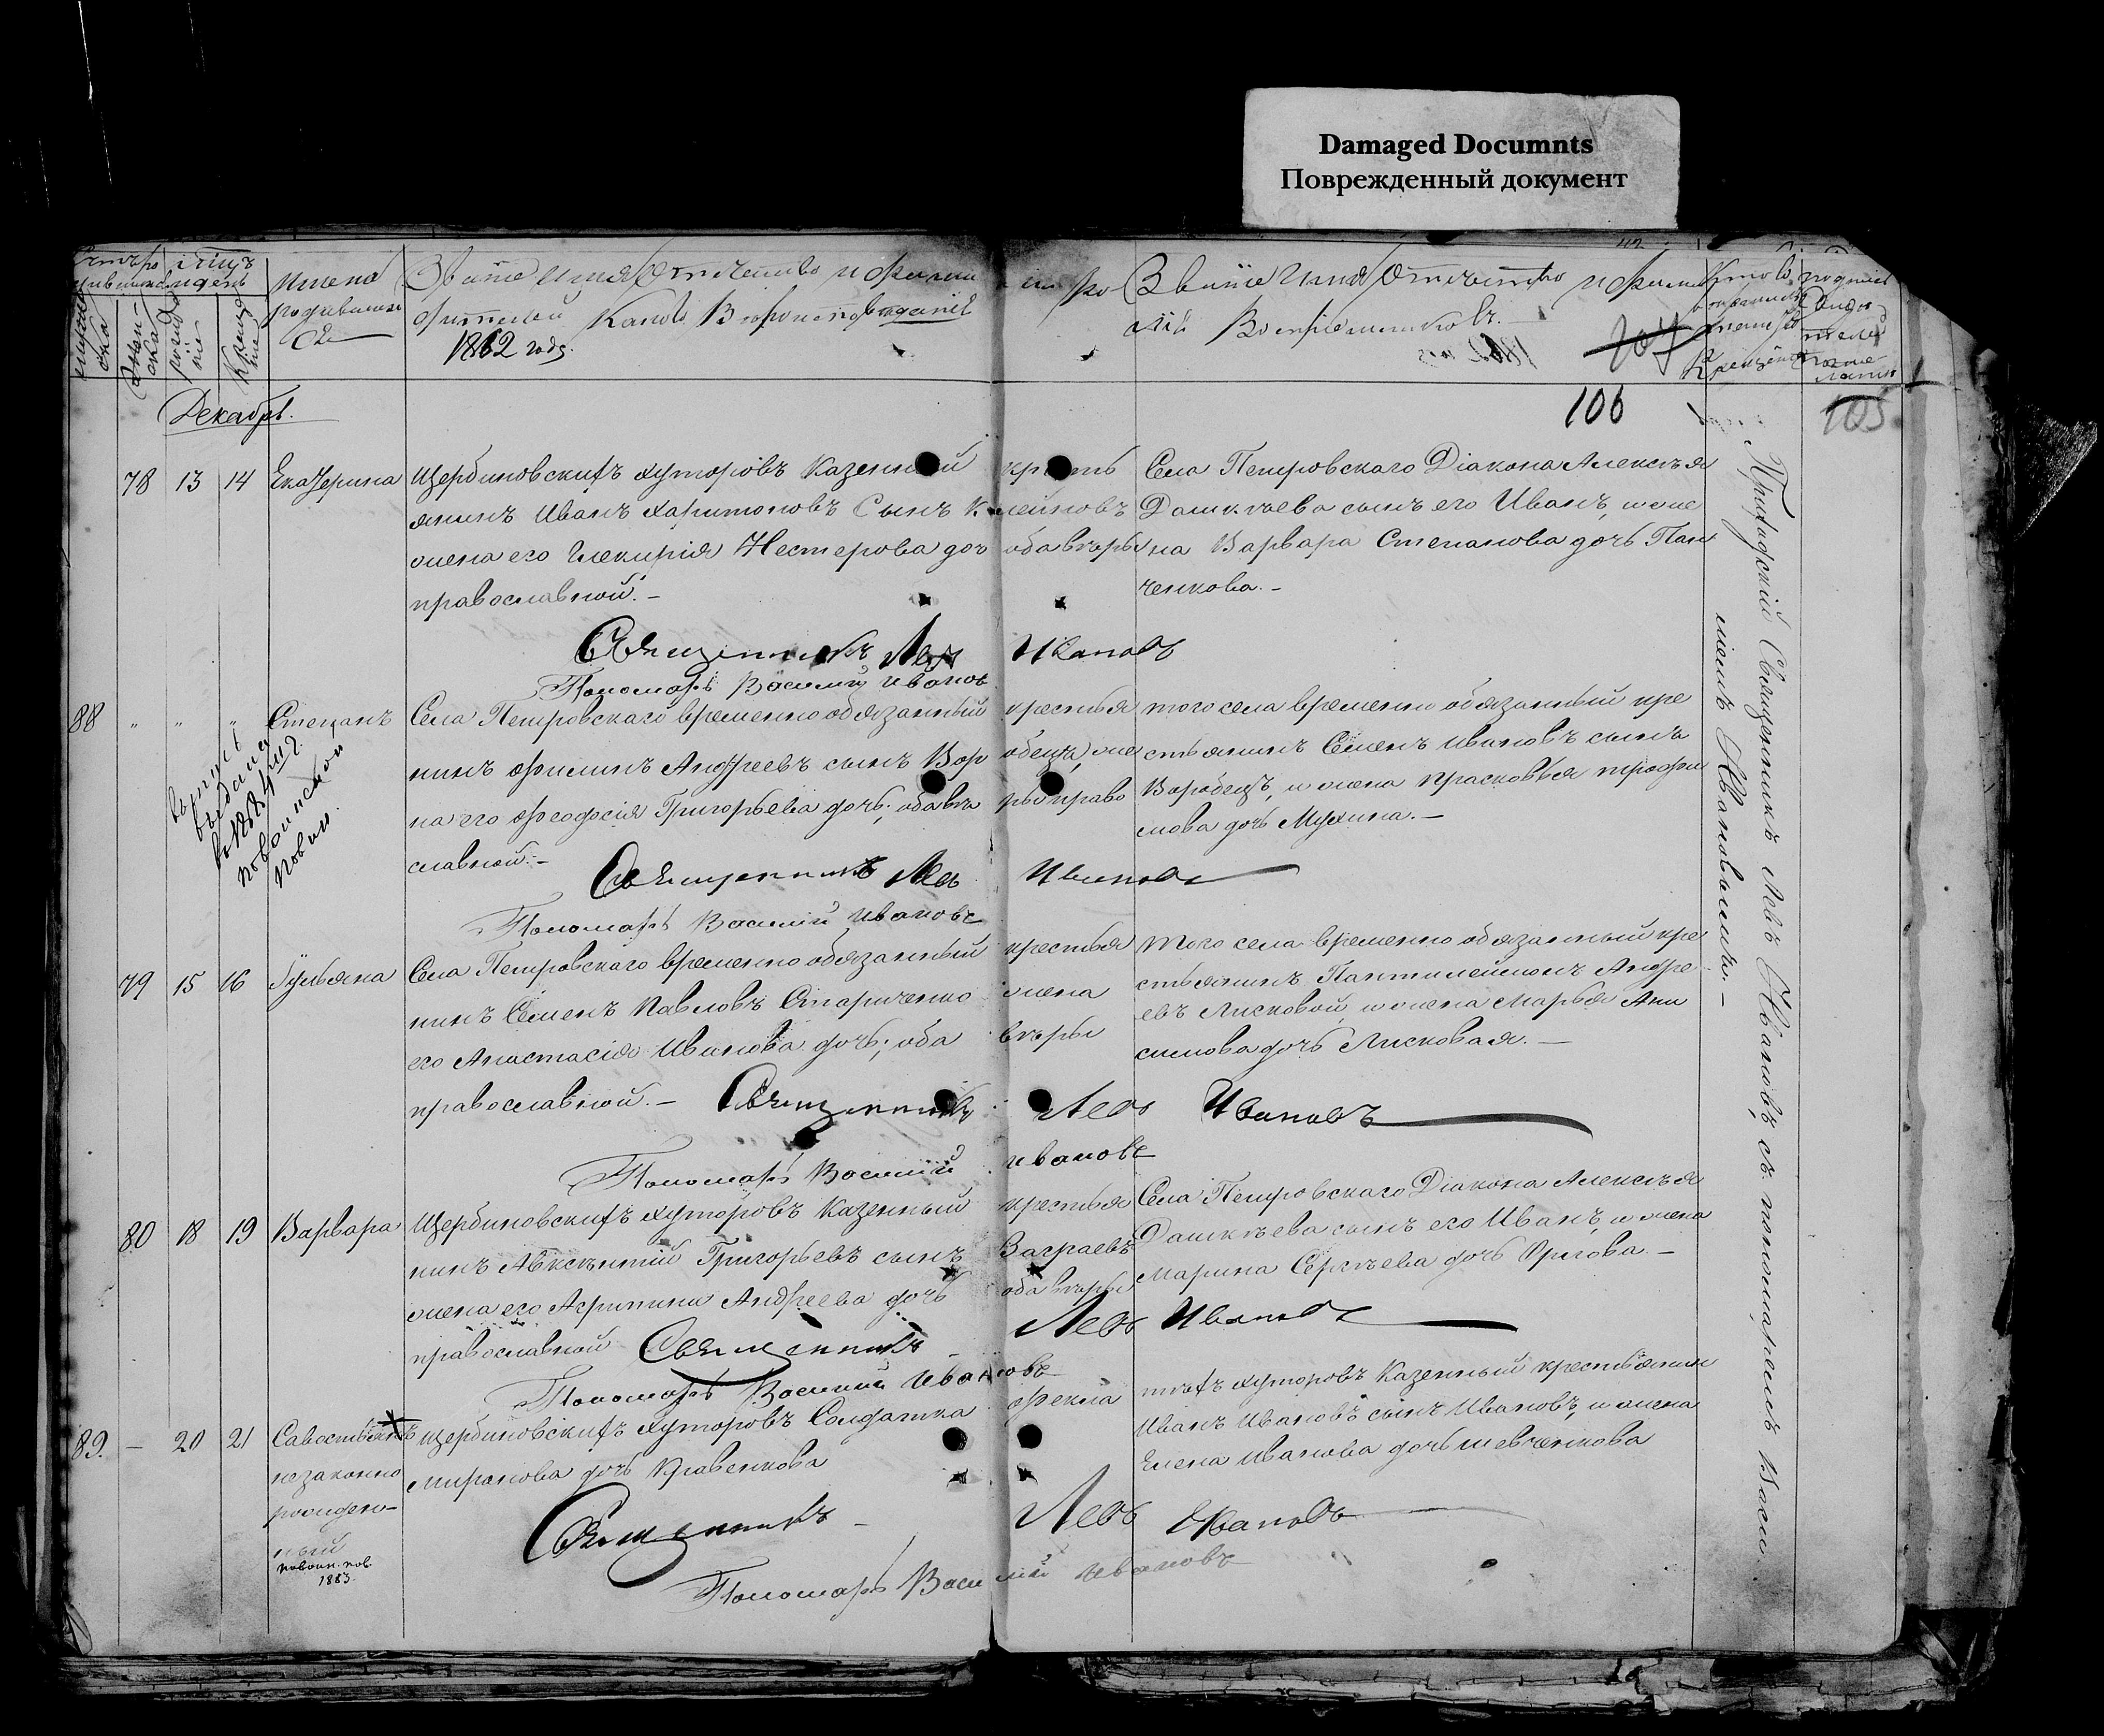 Damaged Documnts
Поврежденный документ
Имена родившихся
Званіе Имя Отчество и Фамилія
Какого Вѣроисповѣданія
1862 года.
Званіе Имя Отчество и
Воспріемниковъ.
107
106
105
Декабрь.
78 13 14 Екатерина
Щербиновскихъ хуторовъ Казенный кресть
янинъ Иванъ Харитоновъ Сынъ
жена его Гликирія Нестерова доч оба вѣры
православной. –
Села Петровскаго Діакона Алексѣя
Дашкѣева сынъ его Иванъ, и же
на Варвара Степанова дочь Пан
ченкова. –
Священникъ Левъ Ивановъ
Пономарь Василий Ивановъ
88 " " " Степанъ
Села Петровскаго временно обязанный крестья
нинъ Филипъ Андреевъ сынъ Вор обецъ, же
на его Феодосія Григорьева дочь; оба вѣ ры право
славной. –
того села временно обязанный кре
стьянинъ Семенъ Ивановъ сынъ
Воробецъ, и жена Прасковья Трофи
мова дочь Мухина. –
Священникъ Левъ Ивановъ
Пономарь Василий Ивановъ
79 15 16 Ульяна
Села Петровскаго временно обязанный крестья
нинъ Семенъ Павловъ Стариченко жена
его Анастасія Иванова дочь; оба вѣры
православной. –
того села временно обязанный кре
стьянинъ Пантилеймонъ Андре
евъ Лисковой, и жена Марья Ани
симова дочь Лисковая. –
Священникъ Левъ Ивановъ
Пономарь Василий Ивановъ
80 18 19 Варвара
Щербиновскихъ хуторовъ Казенный крестья
нинъ Авксентій Григорьевъ сынъ Заграевъ
жена его Агрипина Андреева дочь оба вѣры
православной
Села Петровскаго Діакона Алексѣя
Дашкѣева сынъ его Иванъ, и жена
Марина Сергѣева дочь
Священникъ Левъ Ивановъ
Пономарь Василий Ивановъ
89. – 20 21 Савостьянъ
незаконно
рожден–
ный
повоин. пов.
1883.
Щербиновскихъ хуторовъ Солдатка Фекла
Миронова дочь Кравенкова
тѣхъ хуторовъ Казенный крестьянин
Иванъ Ивановъ сынъ Ивановъ, и жена
Елена Иванова дочь Шевченкова
Священникъ Левъ Ивановъ
Пономарь Василий Ивановъ
Приходскій Священникъ Левъ Ивановъ съ пономаремъ Васи
ліемъ Ивановымъ. –